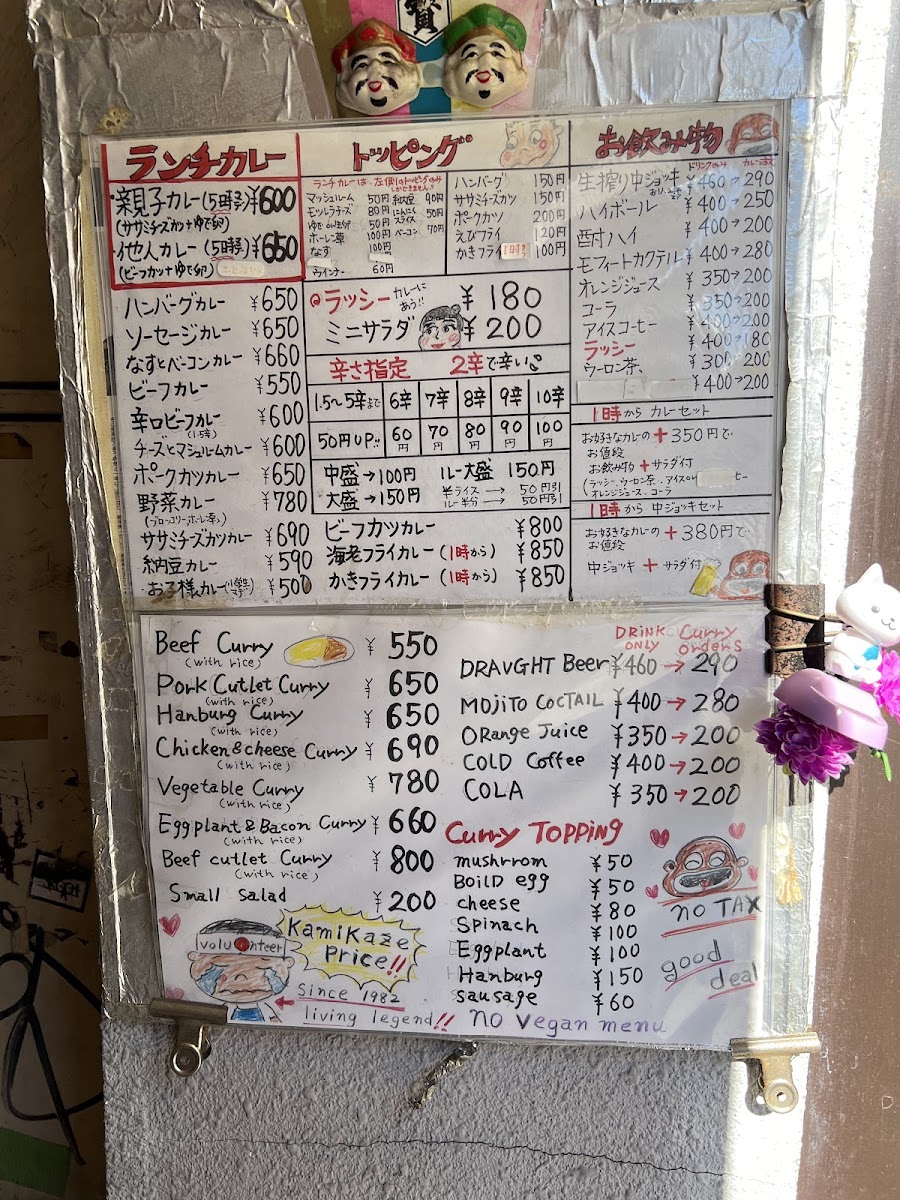 ランチカレー
親子カレー(5日時予)¥600
(ササミチーズカツ+ゆで卵)
他人カレー(5日時予)¥650
(ビーフカツ+ゆで卵)
ハンバーグカレー ¥650
ソーセージカレー ¥650
なすとベーコンカレー ¥660
ビーフカレー ¥550
辛口ビーフカレー ¥600
(1.5辛)
チーズとマッシュルームカレー ¥600
ポークカツカレー ¥650
野菜カレー ¥780
(ブロッコリー・ホーレン草)
ササミチーズカツカレー ¥690
納豆カレー ¥590
・お子様カレー ¥500
トッピング
ランチカレーは、左側のトッピングのみ
マッシュルーム 50円
モッツレラチーズ 80円
ゆで卵 50円
ホーレン草 100円
なす 100円
ウインナー 60円
納豆 90円
にんにくスライス 50円
ベーコン 70円
ハンバーグ 150円
ササミチーズカツ 150円
ポークカツ 200円
えびフライ 120円
かきフライ 1時〜 100円
ラッシー カレーにあう!! ¥180
ミニサラダ ¥200
辛さ指定 2辛で辛い
1.5〜5辛まで 6辛 7辛 8辛 9辛 10辛
50円UP!! 60円 70円 80円 90円 100円
中盛→100円 ルー大盛 150円
大盛→150円 半ライス → 50円引
ルー半分 → 50円引
ビーフカツカレー ¥800
海老フライカレー(1時から) ¥850
かきフライカレー(1時から) ¥850
お飲み物
ドリンクのみ カレー注文
生搾り中ジョッキ ¥460→290
ハイボール ¥400→250
酎ハイ ¥400→200
モフィートカクテル ¥400→280
オレンジジュース ¥350→200
コーラ ¥350→200
アイスコーヒー ¥400→200
ラッシー ¥400→180
ウーロン茶、 ¥300→200
¥400→200
1時から カレーセット
お好きなカレーの+350円で
お値段
お飲み物+サラダ付
(ラッシー、ウーロン茶、アイス
オレンジジュース、コーラ
1時から 中ジョッキセット
お好きなカレーの+380円で
お値段
中ジョッキ+サラダ付
Beef Curry ¥550
(with rice)
Pork Cutlet Curry ¥650
(with rice)
Hanburg Curry ¥650
(with rice)
Chicken&cheese Curry ¥690
(with rice)
Vegetable Curry ¥780
(with rice)
Eggplant&Bacon Curry ¥660
(with rice)
Beef cutlet Curry ¥800
(with rice)
Small salad ¥200
volunteer
Kamikaze
Price!!
Since 1982
living legend!!
DRINK ONLY Curry orders
DRAVGHT Beer ¥460→290
MOJITO COCTAIL ¥400→280
Orange Juice ¥350→200
COLD Coffee ¥400→200
COLA ¥350→200
Curry TOPPING
mushrrom ¥50
BOILD egg ¥50
cheese ¥80
Spinach ¥100
Eggplant ¥100
Hanburg ¥150
sausage ¥60
no TAX
good
deal
no vegan menu